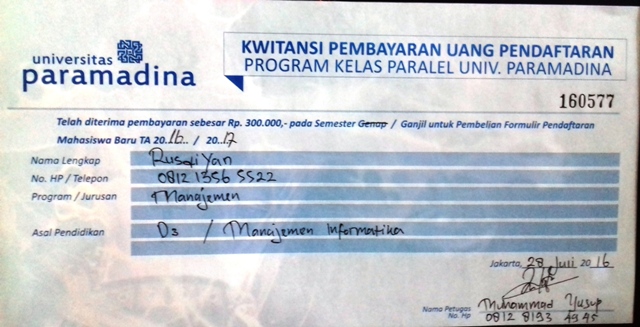 universitas
paramadina
KWITANSI PEMBAYARAN UANG PENDAFTARAN
PROGRAM KELAS PARALEL UNIV. PARAMADINA
160577
Telah diterima pembayaran sebesar Rp. 300.000,- pada Semester Genap / Ganjil untuk Pembelian Formulir Pendaftaran
Mahasiswa Baru TA 20.16.. / 20..17
Nama Lengkap Rusdiyan
No. HP / Telepon 0812 1356 5522
Program / Jurusan Manajemen
Asal Pendidikan D3 / Manajemen Informatika
Jakarta, 28 Juli 2016
Nama Petugas Muhammad Yusup
No. Hp 0812 8193 4945